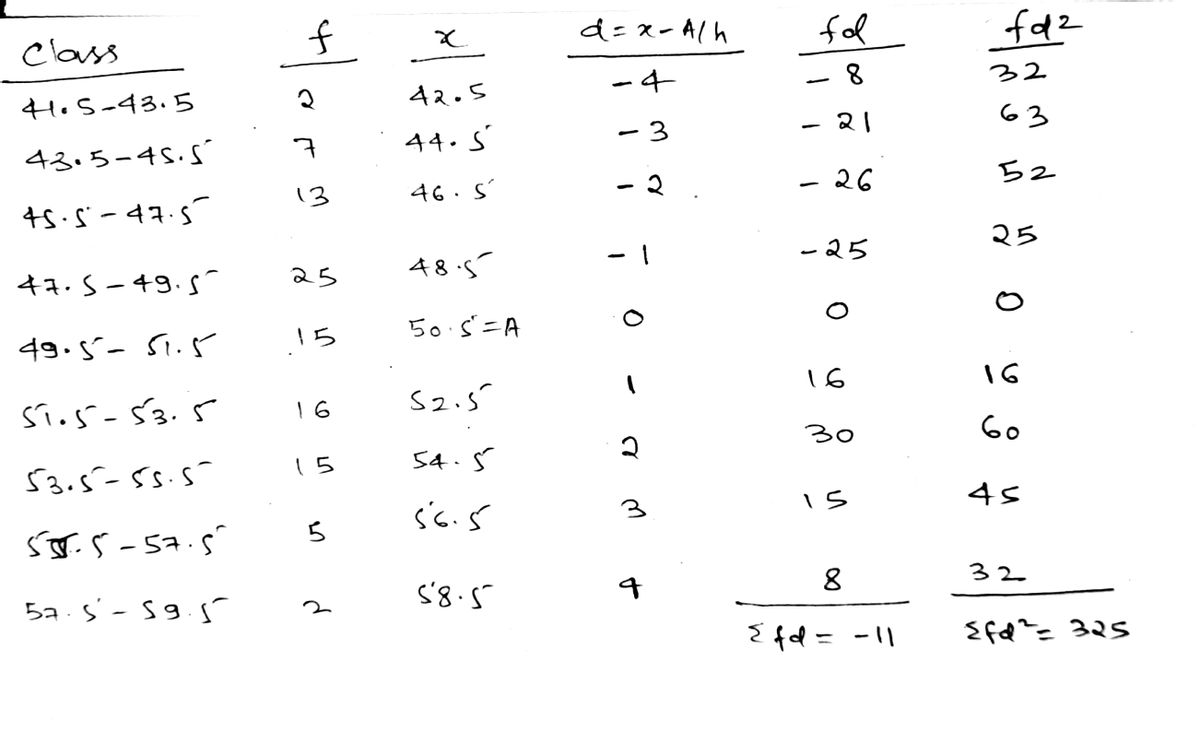 Class f x d = x - A/h fd fd2
41.5-43.5 2 42.5 -4 -8 32
43.5-45.5 7 44.5 -3 -21 63
45.5-47.5 13 46.5 -2 -26 52
47.5-49.5 25 48.5 -1 -25 25
49.5-51.5 15 50.5=A 0 0 0
51.5-53.5 16 52.5 1 16 16
53.5-55.5 15 54.5 2 30 60
55.5-57.5 5 56.5 3 15 45
57.5-59.5 2 58.5 4 8 32
Σfd = -11 Σfd²= 325